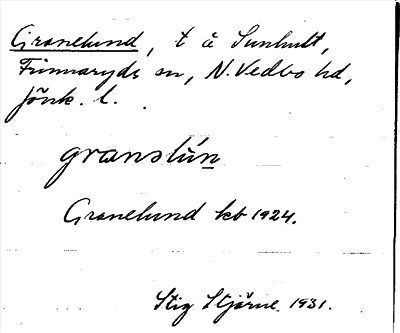 Granelund, t å Sunhult,
Frinnaryds sn, N. Vedbo hd,
Jönk. l.
granslún
Granelund kb 1924.
Stig Stjärne 1931.